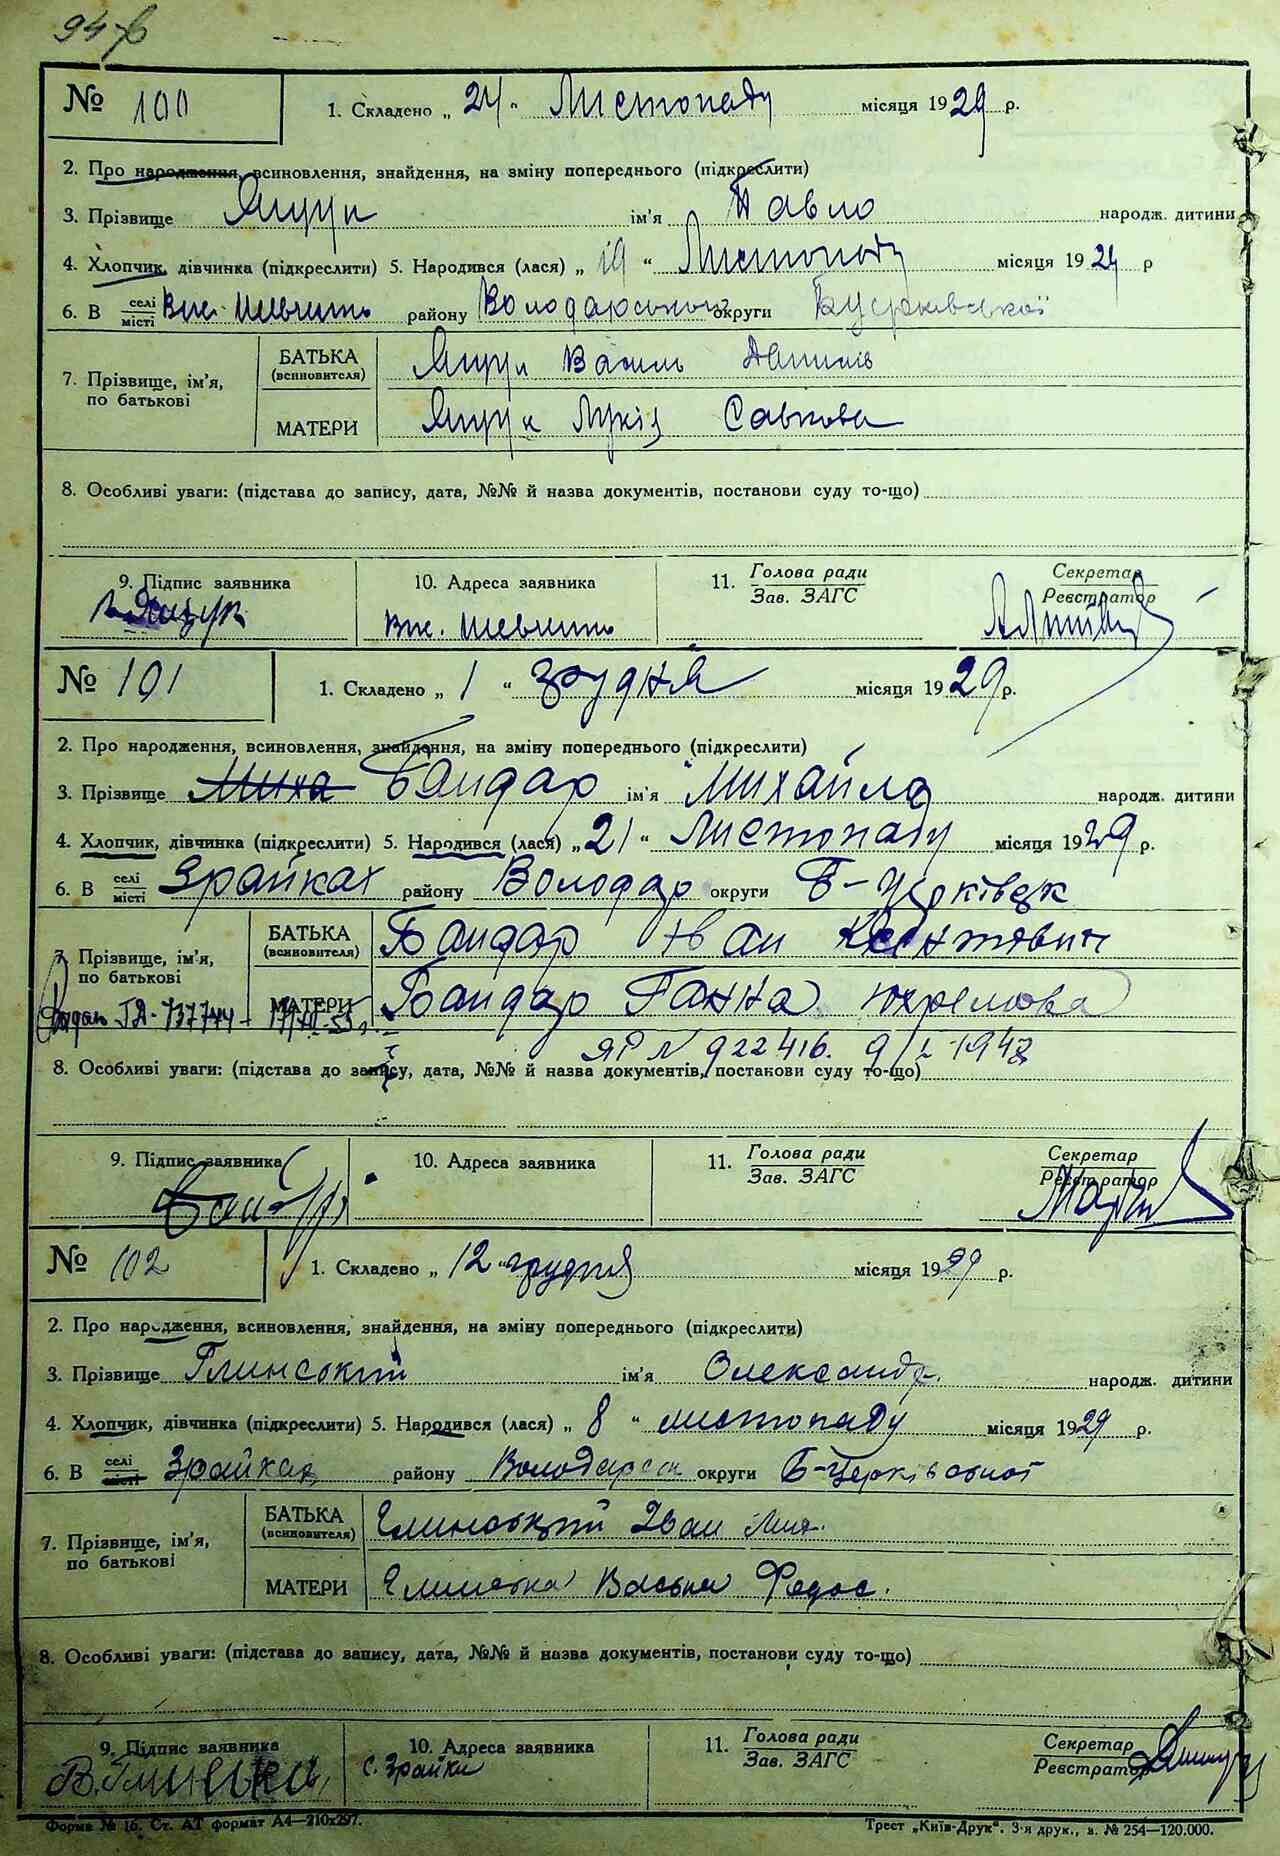 № 100 1. Складено „ 24 “ Листопаду місяця 1929 р.
2. Про народження, всиновлення, знайдення, на зміну попереднього (підкреслити)
3. Прізвище Ящук ім'я Павло народж. дитини
4. Хлопчик, дівчинка (підкреслити) 5. Народився (лася) „ 19 “ Листопаду місяця 1929 р
6. В селі/місті району Володарського округи
7. Прізвище, ім'я, по батькові
БАТЬКА (всиновителя) Ящук Василь
МАТЕРИ Ящук Лукія Савкова
8. Особливі уваги: (підстава до запису, дата, №№ й назва документів, постанови суду то-що)
9. Підпис заявника 10. Адреса заявника 11. Голова ради/Зав. ЗАГС Секретар/Реєстратор
Ящук
№ 101 1. Складено „ 1 “ грудня місяця 1929 р.
2. Про народження, всиновлення, знайдення, на зміну попереднього (підкреслити)
3. Прізвище Миха Бандар ім'я Михайло народж. дитини
4. Хлопчик, дівчинка (підкреслити) 5. Народився (лася) „ 21 “ Листопаду місяця 1929 р.
6. В селі/місті Зрайках району Володар округи Б-Церківск
7. Прізвище, ім'я, по батькові
БАТЬКА (всиновителя) Бандар Иван
МАТЕРИ Бандар Ганна
ЯР № 922416. 9/I-1948
8. Особливі уваги: (підстава до запису, дата, №№ й назва документів, постанови суду то-що)
9. Підпис заявника 10. Адреса заявника 11. Голова ради/Зав. ЗАГС Секретар/Реєстратор
№ 102 1. Складено „ 12 “ грудня місяця 1929 р.
2. Про народження, всиновлення, знайдення, на зміну попереднього (підкреслити)
3. Прізвище Глинський ім'я Олександр. народж. дитини
4. Хлопчик, дівчинка (підкреслити) 5. Народився (лася) „ 8 “ листопаду місяця 1929 р.
6. В селі/місті Зрайках району Володарськ округи Б-Церківської
7. Прізвище, ім'я, по батькові
БАТЬКА (всиновителя) Глинський Іван
МАТЕРИ Глинська Федос.
8. Особливі уваги: (підстава до запису, дата, №№ й назва документів, постанови суду то-що)
9. Підпис заявника 10. Адреса заявника 11. Голова ради/Зав. ЗАГС Секретар/Реєстратор
В. Глинська с. Зрайки
Форма № 16. Ст. АТ формат А4—210х297. Трест „Київ-Друк“. 3-я друк., з. № 254—120.000.